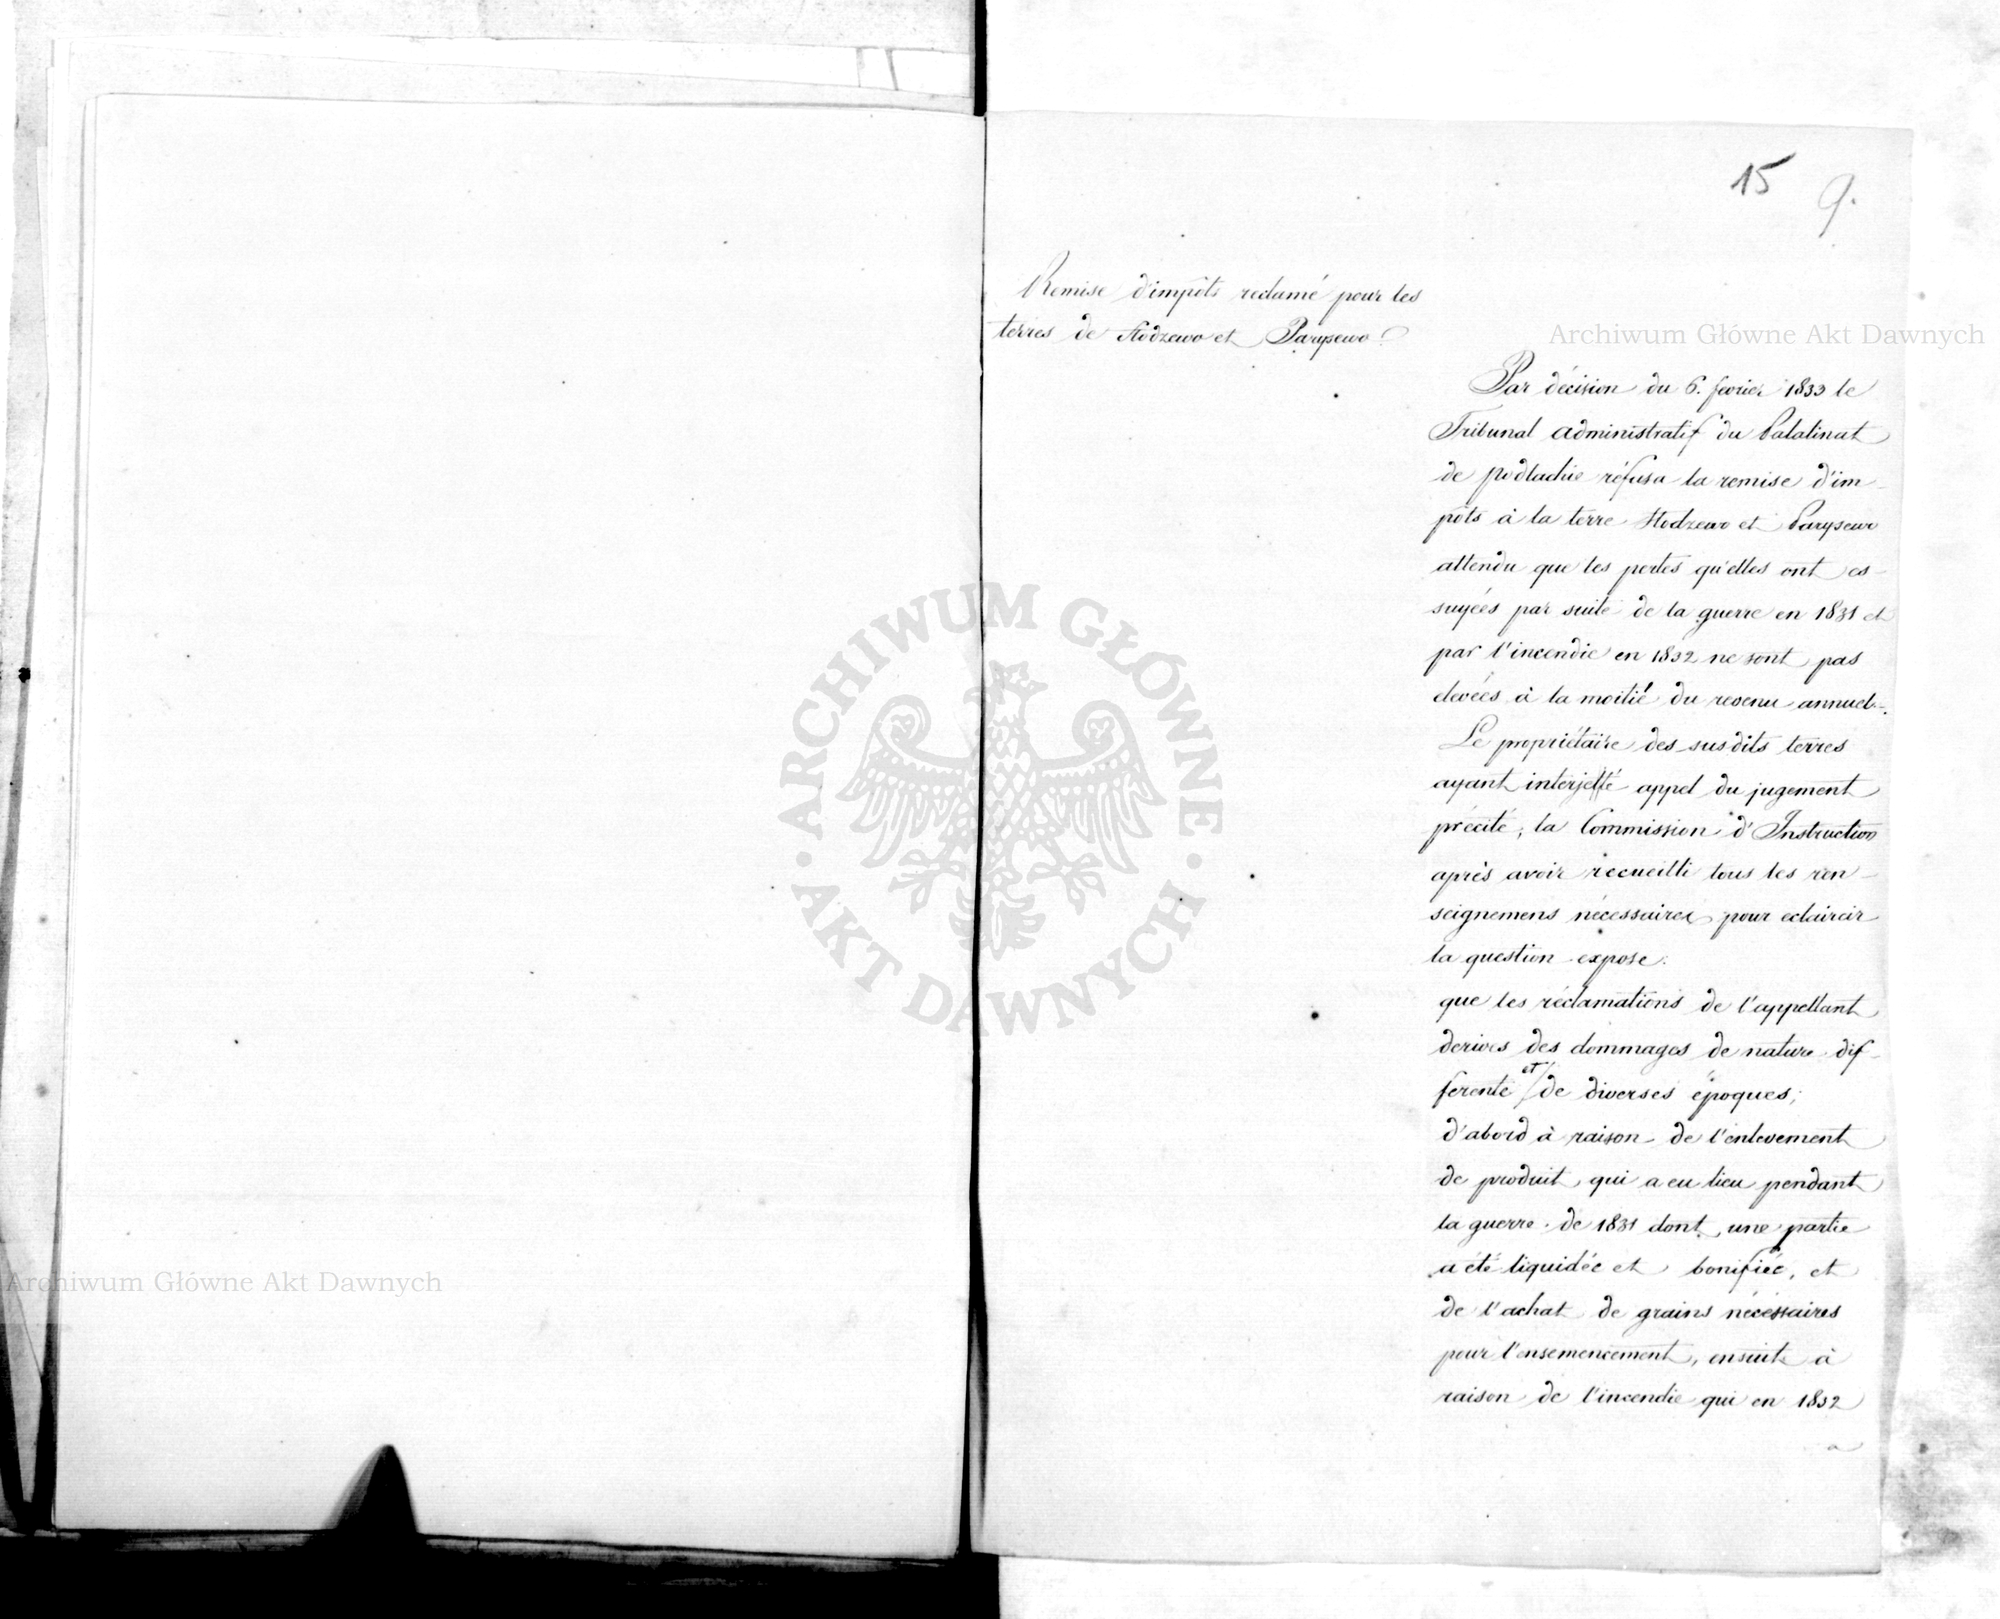 15 9.
Remise d'impôts reclamé pour les
terres de Hodzewo et Parysewo.
Par décision du 6. fevrier 1833 le
Tribunal administratif du Palatinat
de podlachie réfusa la remise d'im-
pôts à la terre Hodzewo et Parysewo
attendu que les pertes qu'elles ont es-
suyées par suite de la guerre en 1831 et
par l'incendie en 1832 ne sont pas
elevées à la moitié du revenu annuel.
Le propriétaire des susdits terres
ayant interjetté appel du jugement
précité, la Commission d'Instruction
après avoir recueilli tous les ren-
seignemens nécessaires pour eclaircir
la question expose:
que les réclamations de l'appellant
derives des dommages de nature dif-
ferente et de diverses époques;
d'abord à raison de l'enlevement
de produit, qui a eu lieu pendant
la guerre de 1831 dont une partie
a été liquidée et bonifiée, et
de l'achat de grains nécessaires
pour l'ensemencement, ensuite à
raison de l'incendie qui en 1832
a
Archiwum Główne Akt Dawnych
Archiwum Główne Akt Dawnych
ARCHIWUM GŁÓWNE · AKT DAWNYCH ·